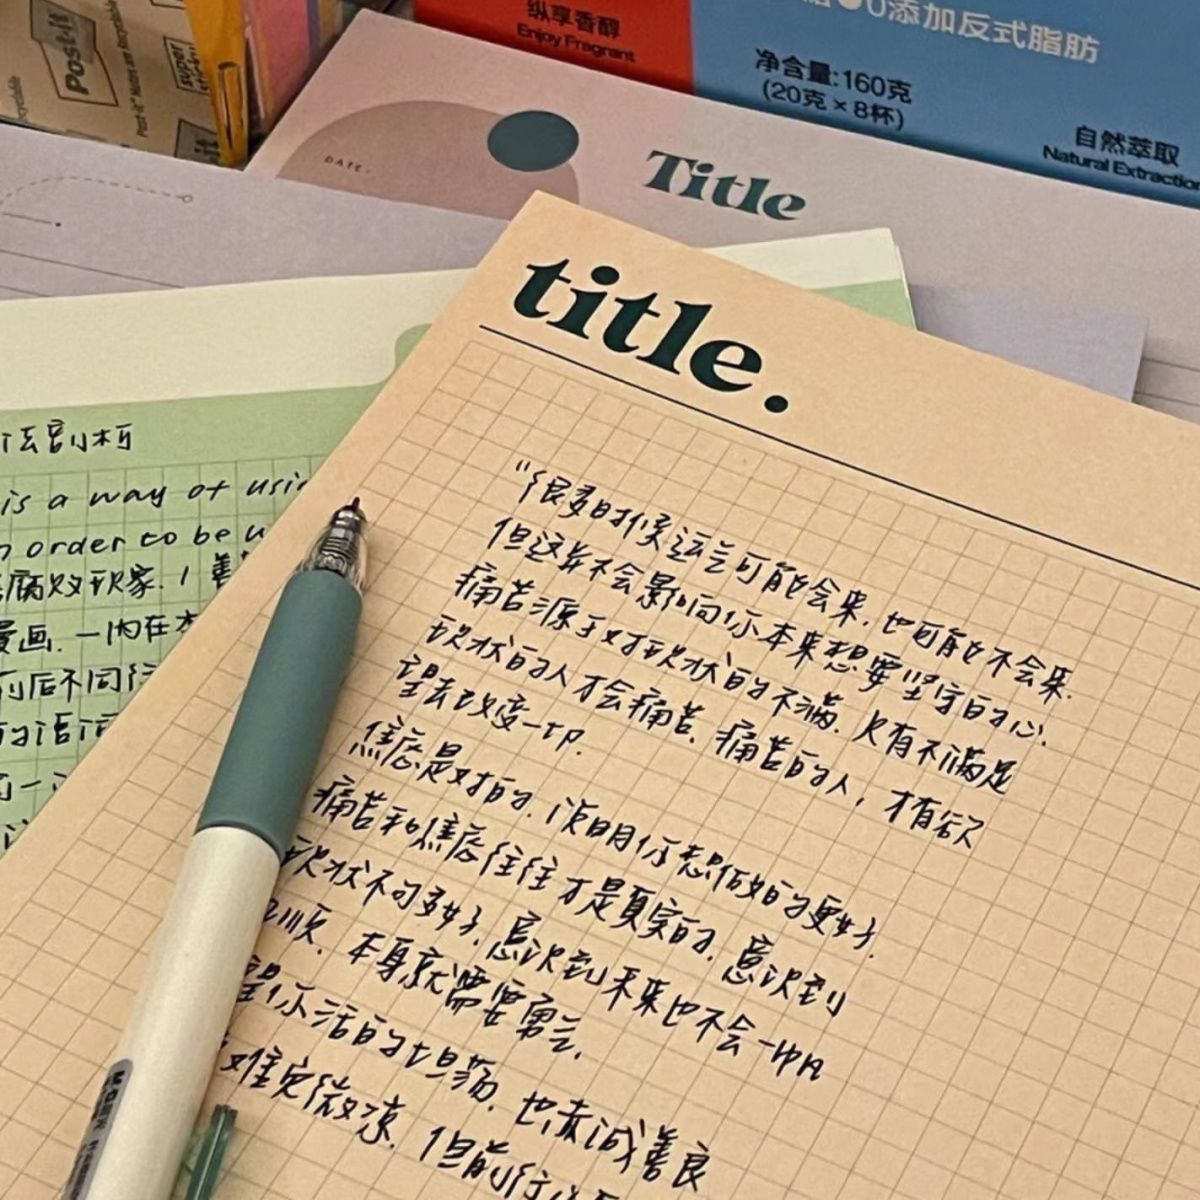 纵享香醇
Enjoy Fragrant
0添加反式脂肪
净含量:160克
(20克×8杯)
自然萃取
Natural Extraction
Post-it
super
Post-it
DATE.
Title
title.
“很多时候运气可能会来,也可能不会来.
但这并不会影响你本来想要坚守的心.
痛苦源于对现状的不满.只有不满足
现状的人才会痛苦.痛苦的人,才有欲
望去改变一切.
焦虑是对的,说明你想做的更好.
痛苦和焦虑往往才是真实的.意识到
现状不可多好,意识到未来也不会一帆
风顺.本身就需要勇气.
望你活的坦荡.也赤诚善良
难免微凉.但前行
is a way of using
order to be
腐败现象.
漫画.一内在本
前后不同行
的话语